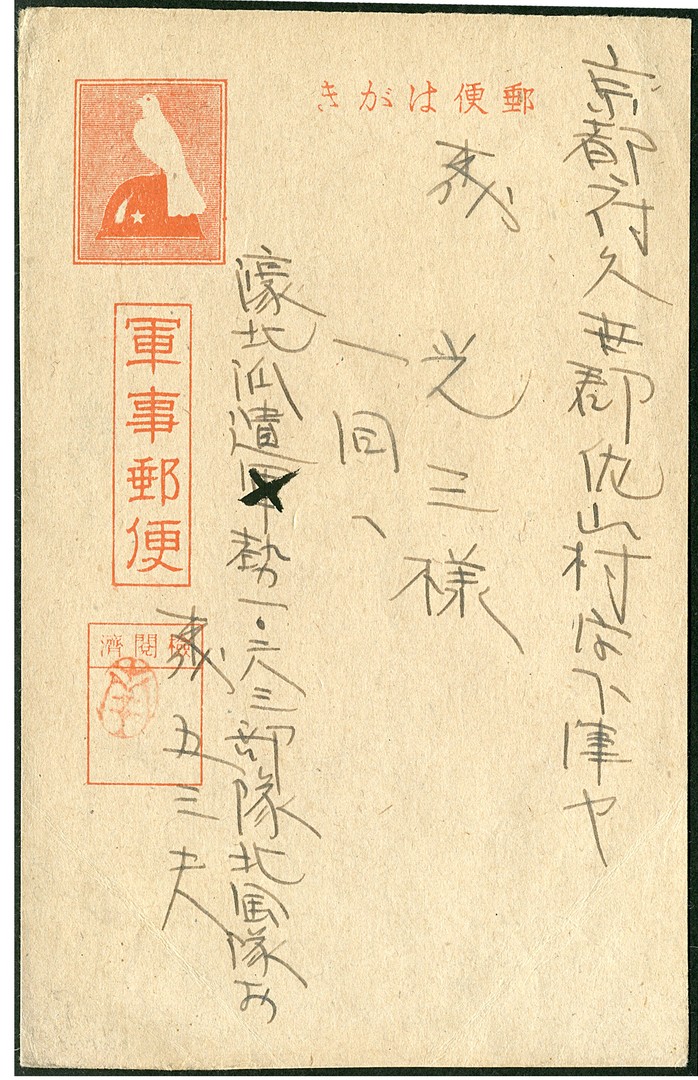 郵便はがき
京都府久世郡佐山村字下津ヤ
光三様
一同へ
濠北派遣軍勢一・六三部隊北隊
五三夫
軍事郵便
検閲済